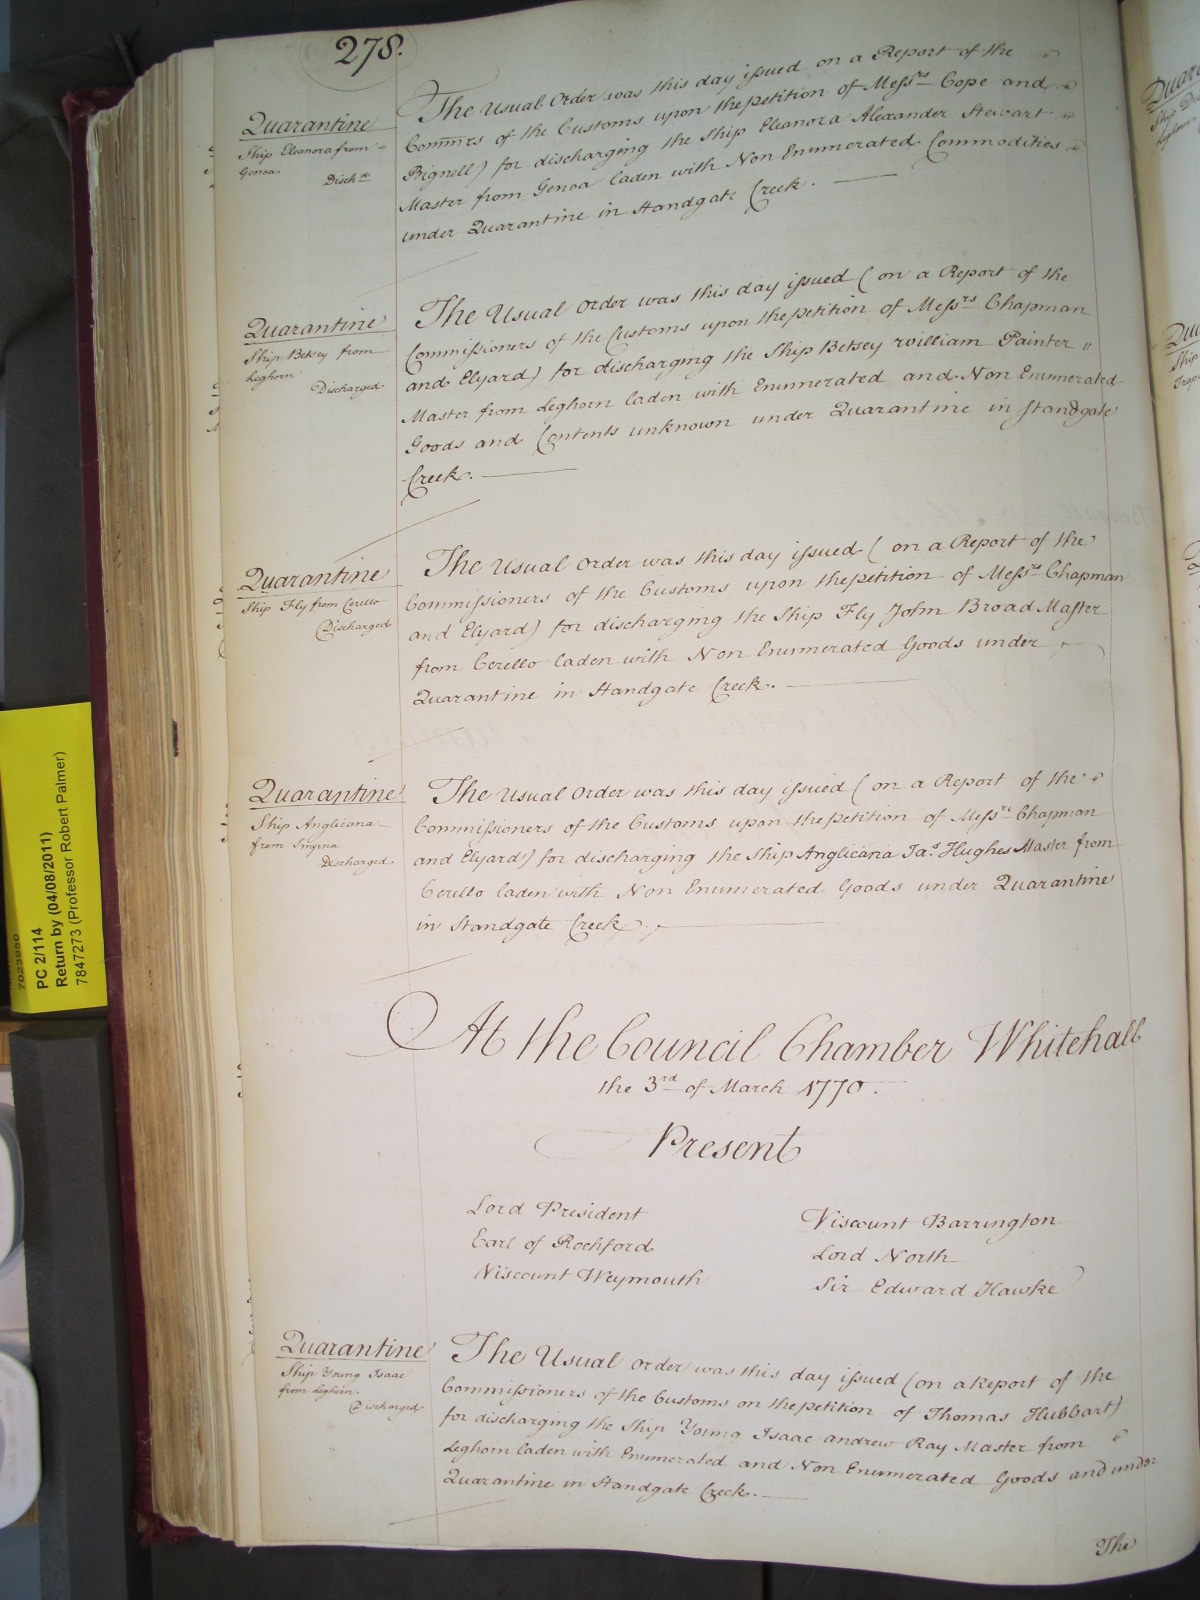 278.
Quarantine
Ship Eleanora from
Genoa.
Disch.d
The Usual Order was this day issued on a Report of the
Com̄rs of the Customs upon the petition of Mess.rs Cope and
Bignell) for discharging the Ship Eleanora Alexander Stewart
Master from Genoa laden with Non Enumerated Commodities
under Quarantine in Standgate Creek.
Quarantine
Ship Betsey from
Leghorn
Discharged
The Usual Order was this day issued (on a Report of the
Commissioners of the Customs upon the petition of Mess.rs Chapman
and Elyard) for discharging the Ship Betsey William Painter
Master from Leghorn laden with Enumerated and Non Enumerated
Goods and Contents unknown under Quarantine in Standgate
Creek.
Quarantine
Ship Fly from Cerello
Discharged
The Usual Order was this day issued (on a Report of the
Commissioners of the Customs upon the petition of Mess.rs Chapman
and Elyard) for discharging the Ship Fly John Broad Master
from Cerello laden with Non Enumerated Goods under
Quarantine in Standgate Creek.
Quarantine
Ship Anglicana
from Smyrna
Discharged.
The Usual Order was this day issued (on a Report of the
Commissioners of the Customs upon the petition of Mess.rs Chapman
and Elyard) for discharging the Ship Anglicana Ja.s Hughes Master from
Cerello laden with Non Enumerated Goods under Quarantine
in Standgate Creek.
At the Council Chamber Whitehall
the 3rd of March 1770.
Present
Lord President
Earl of Rochford
Viscount Weymouth
Viscount Barrington
Lord North
Sir Edward Hawke
Quarantine
Ship Young Isaac
from Leghorn.
Discharged
The Usual Order was this day issued (on a Report of the
Commissioners of the Customs on the petition of Thomas Hubbart)
for discharging the Ship Young Isaac Andrew Ray Master from
Leghorn laden with Enumerated and Non Enumerated Goods and under
Quarantine in Standgate Creek.
The
7023950
PC 2/114
Return by (04/08/2011)
7847273 (Professor Robert Palmer)